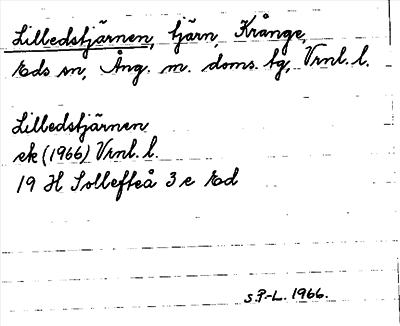 Lilledstjärnen, tjärn, Krånge,
Eds sn, Ång. m. doms. tg, Vrnl. l.
Lilledstjärnen
ek (1966) Vrnl. l.
19 H Sollefteå 3 e Ed
S.P.-L. 1966.